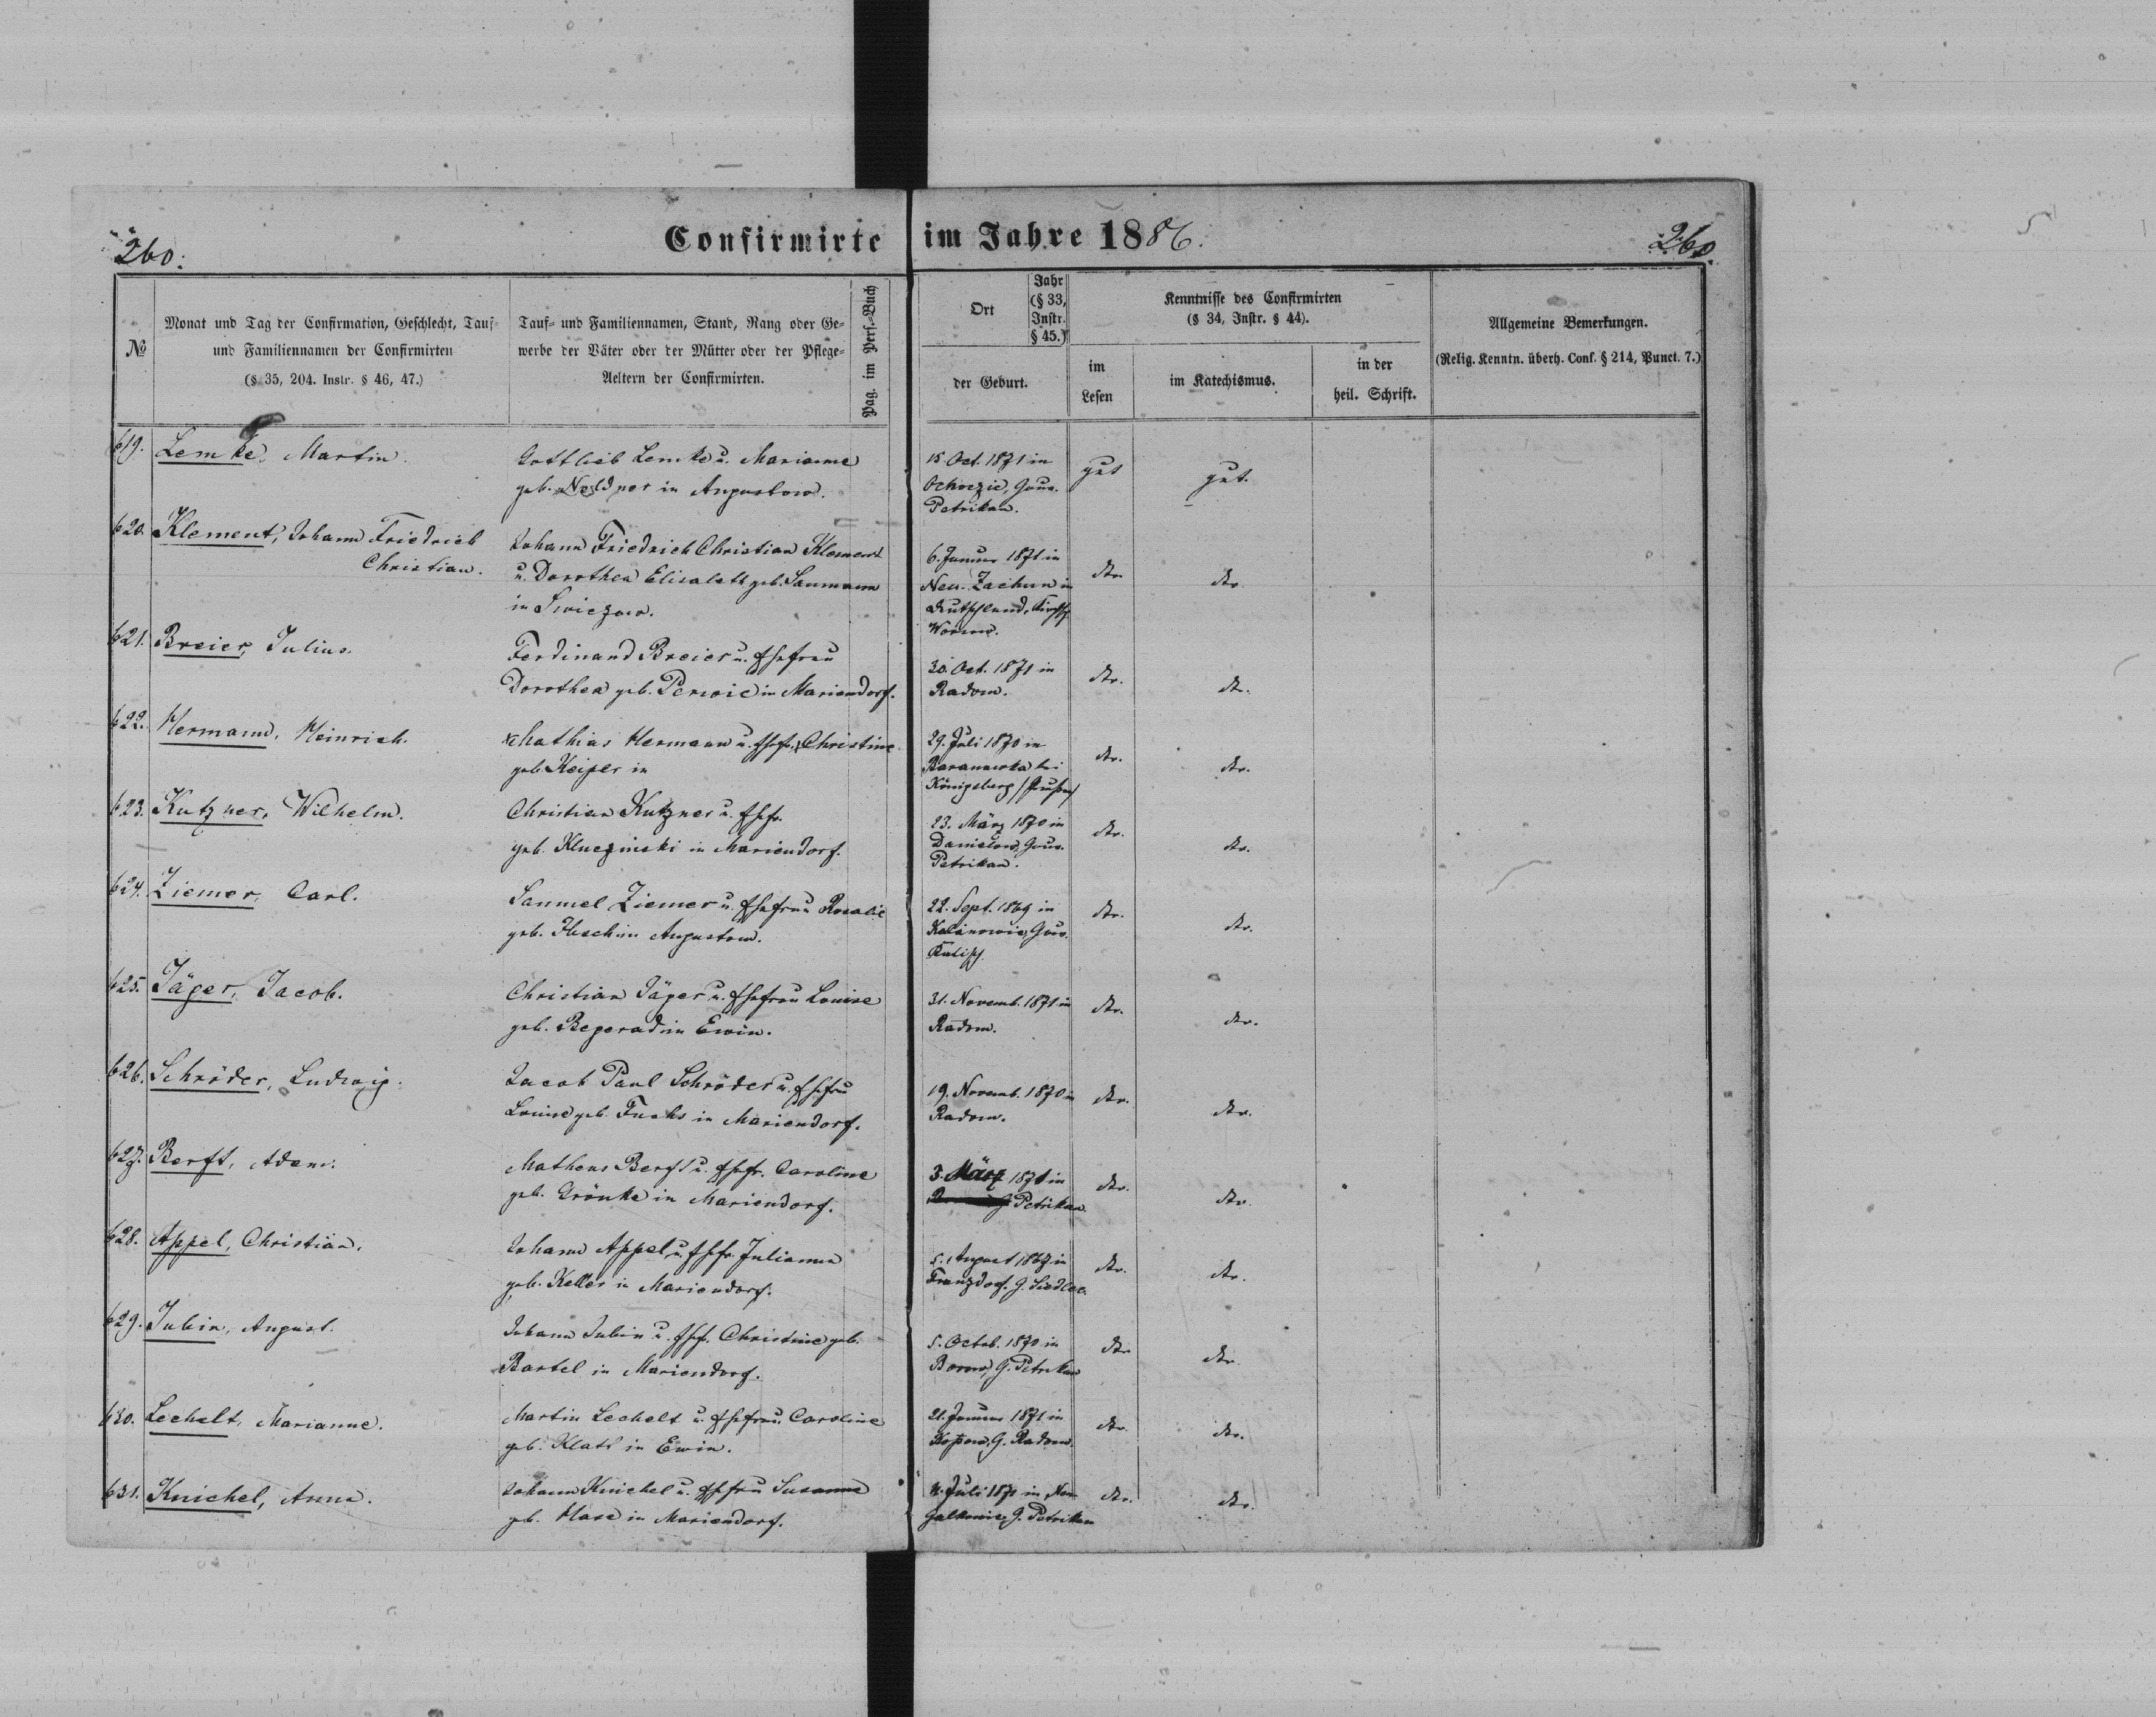 260.
Confirmirte im Jahre 1886.
260.
№
Monat und Tag der Confirmation, Geschlecht, Tauf-
und Familiennamen der Confirmirten
(§ 35, 204. Instr. § 46, 47.)
Tauf- und Familiennamen, Stand, Rang oder Ge-
werbe der Väter oder der Mütter oder der Pflege-
Aeltern der Confirmirten.
Pag. im Pers.-Buch
Ort
Jahr
(§ 33,
Instr.
§ 45.)
der Geburt.
Kenntnisse des Confirmirten
(§ 34, Instr. § 44).
im
Lesen
im Katechismus.
in der
heil. Schrift.
Allgemeine Bemerkungen.
(Relig. Kenntn. überh. Conf. § 214, Punct. 7.)
619. Lemke, Martin.
Gottlieb Lemke u. Marianne
geb. Neldner in Augustow.
15 Oct. 1871 in
Gouv.
Petrikau.
gut
gut.
620. Klement, Johann Friedrich
Christian.
Johann Friedrich Christian Klement
u. Dorothea Elisabeth geb. Saumann
in
6. Januar 1871 in
Neu-Zachun in
Deutschland,
dto.
dto.
621. Breier, Julius.
Ferdinand Breier u. Ehefrau
Dorothea geb. in Mariendorf.
30. Oct. 1871 in
Radom.
dto.
dto.
622. Hermann, Heinrich.
Mathias Hermann u. Ehefr. Christine
geb. Keiper in
29. Juli 1870 in
Baranowka bei
Königsberg
dto.
dto.
623. Kutzner, Wilhelm.
Christian Kutzner u. Ehefr.
geb. Kluczinski in Mariendorf.
23. März 1870 in
Danielow, Gouv.
Petrikau.
dto.
dto.
624. Ziemer, Carl.
Samuel Ziemer u. Ehefrau Rosalie
geb. in Augustow.
22. Sept. 1869 in
Kalinowic, Gouv.
Kalisch
dto.
dto.
625. Jäger, Jacob.
Christian Jäger u. Ehefrau Louise
geb. Begerad in Ewin.
31. Novemb. 1871 in
Radom.
dto.
dto.
626. Schröder, Ludwig.
Jacob Paul Schröder u. Ehefrau
Louise geb. Fuchs in Mariendorf.
19. Novemb. 1870 in
Radom.
dto.
dto.
627. Berft, Adam.
Matheus Berft u. Ehefr. Caroline
geb. Grönke in Mariendorf.
3. März 1871 in
G. Petrikau.
dto.
dto.
628. Appel, Christian.
Johann Appel u. Ehefr. Julianna
geb. Keller in Mariendorf.
5. August 1867 in
Franzdorf. G. Siedlec.
dto.
dto.
629. Jubin, August.
Johann Jubin u. Ehefr. Christine geb.
Bartel in Mariendorf.
5. Octob. 1870 in
Borow, G. Petrikau
dto
dto.
630. Lechelt, Marianne.
Martin Lechelt u. Ehefrau Caroline
geb. Klatt in Ewin.
21. Januar 1871 in
G. Radom.
dto.
dto.
631. Knichel, Anna.
Johann Knichel u. Ehefrau Susanna
geb. Hase in Mariendorf.
Juli 1871 in Neu
Galkowic G. Petrikau
dto.
dto.